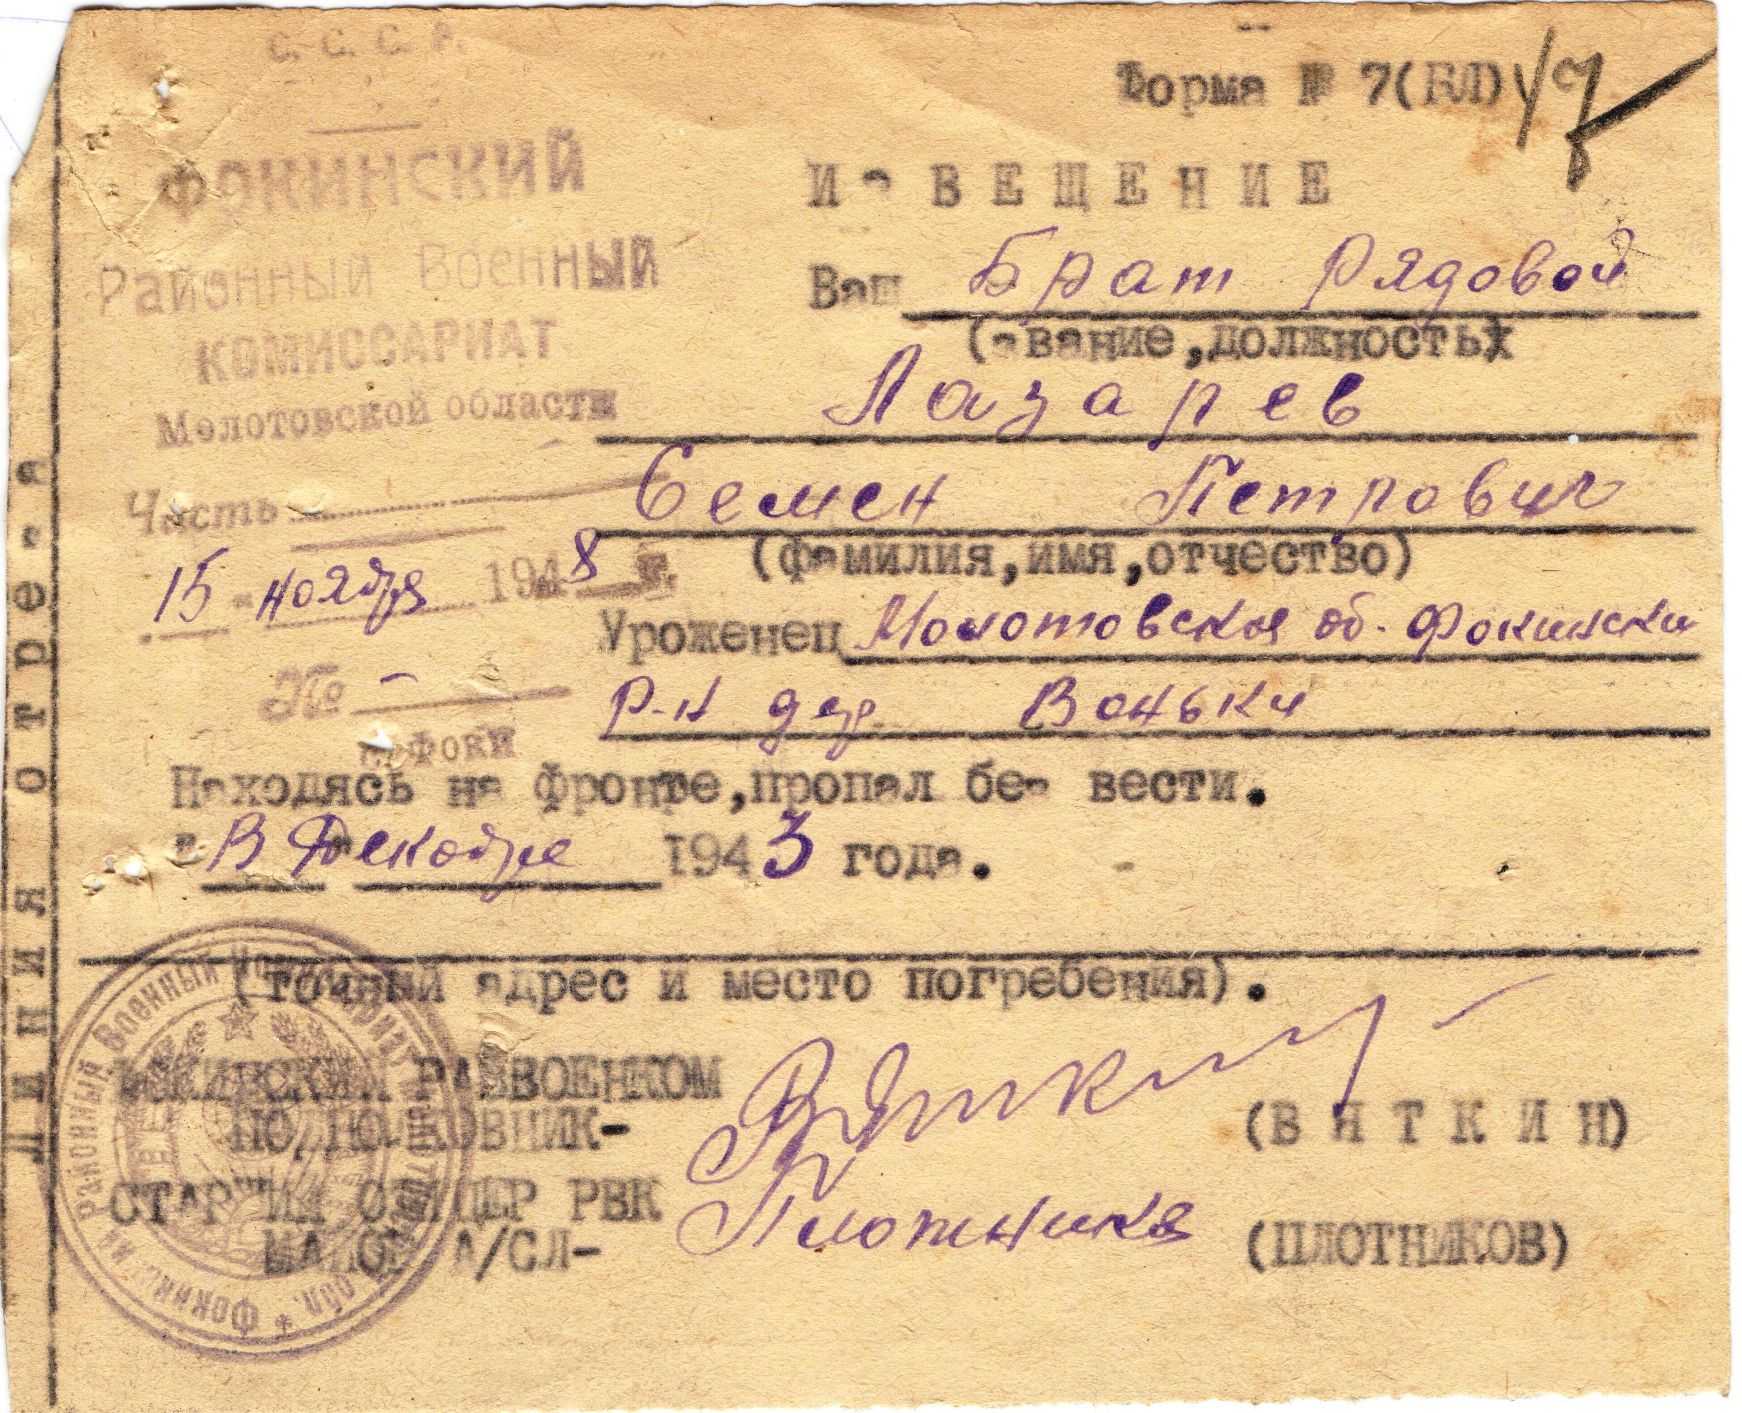 С.С.С.Р.
ФОКИНСКИЙ
Районный Военный
КОМИССАРИАТ
Молотовской области
Часть
15 ноября 1948 г.
№ -
с. Фоки
Форма № 7(БЛ)
ИЗВЕЩЕНИЕ
Ваш Брат Рядовой
(звание,должность)
Лазарев
Семен Петрович
(фамилия,имя,отчество)
Уроженец Молотовская об. Фокински
р-н дер Воньки
Находясь на фронте,пропал без вести.
В Декабре 1943 года.
(точный адрес и место погребения).
ФОКИНСКИЙ РАЙВОЕНКОМ
ПОДПОЛКОВНИК- Вяткин (ВЯТКИН)
СТАРШИЙ ОФИЦЕР РВК
МАЙОР А/СЛ- Плотников (ПЛОТНИКОВ)
Линия отреза
Районный Военный Комиссариат Фокинский обл.